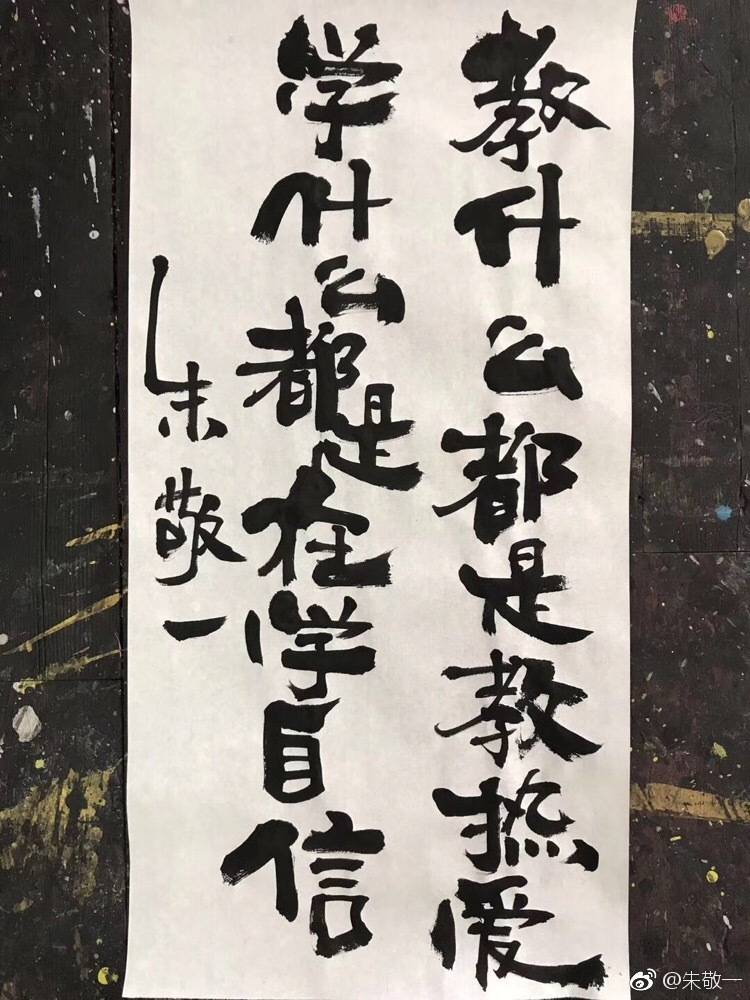 教什么都是教热爱
学什么都是在学自信
朱敬一
@朱敬一